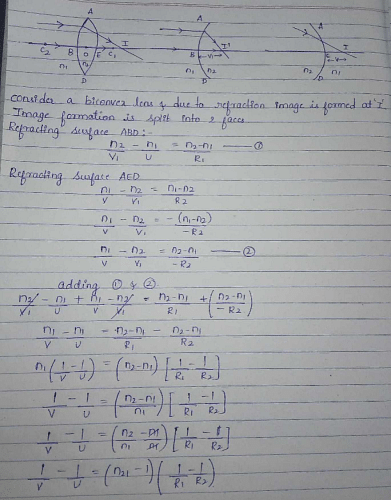 A A A
I I' I
C2 B O E C1 B V1 E V
n1 n2 n1 n2 n2 n1
D D D
consider a biconvex lens & due to refraction image is formed at 'I'
Image formation is split into 2 faces
Refracting surface ABD:-
n2/V1 - n1/U = n2-n1/R1 —— ①
Refracting surface AED
n1/V - n2/V1 = n1-n2/R2
n1/V - n2/V1 = -(n1-n2)/-R2
n1/V - n2/V1 = n2-n1/-R2 —— ②
adding ① & ②
n2/V1 - n1/U + n1/V - n2/V1 = n2-n1/R1 + (n2-n1/-R2)
n1/V - n1/U = n2-n1/R1 - n2-n1/R2
n1(1/V - 1/U) = (n2-n1) [1/R1 - 1/R2]
1/V - 1/U = (n2-n1/n1) [1/R1 - 1/R2]
1/V - 1/U = (n2/n1 - n1/n1) [1/R1 - 1/R2]
1/V - 1/U = (n21 - 1) (1/R1 - 1/R2)